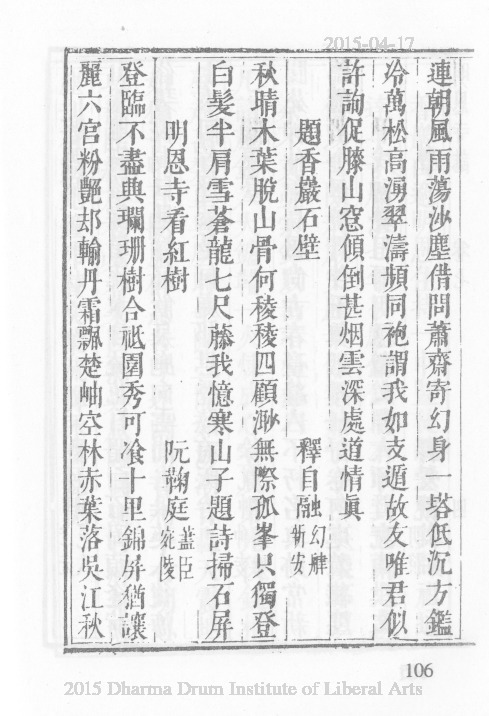 2015-04-17
連朝風雨蕩沙塵借問蕭齋寄幻身一塔低沉方鑑
冷萬松高湧翠濤頻同袍謂我如支遁故友唯君似
許詢促膝山窓傾倒甚烟雲深處道情眞
題香巖石壁 釋自融 幻肂 新安
秋晴木葉脫山骨何稜稜四顧渺無際孤峯只獨登
白髮半肩雪蒼龍七尺藤我憶寒山子題詩掃石屏
明恩寺看紅樹 阮鞠庭 藎臣 宛陵
登臨不盡典斕珊樹合祗園秀可飡十里錦屏猶讓
麗六宫粉艷却輸丹霜飄楚岫空林赤葉落吳江秋
106
2015 Dharma Drum Institute of Liberal Arts